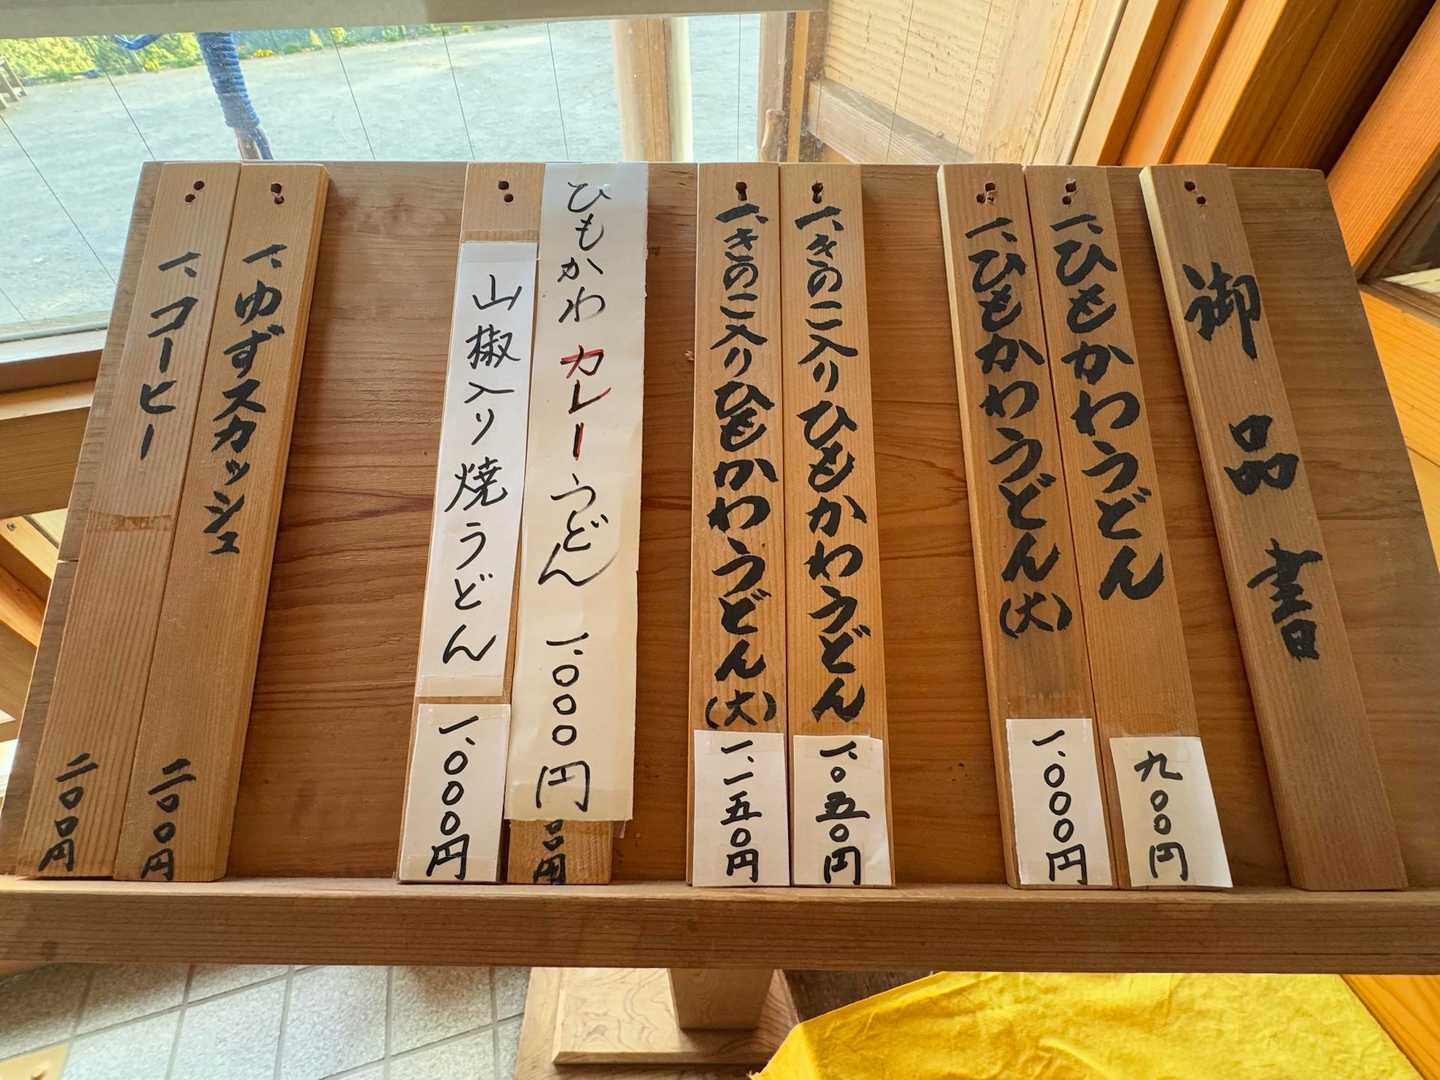 御品書
一、ひもかわうどん
九〇〇円
一、ひもかわうどん(大)
一、〇〇〇円
一、きのこ入りひもかわうどん
一、〇五〇円
一、きのこ入りひもかわうどん(大)
一、一五〇円
ひもかわカレーうどん 一、〇〇〇円
〇円
山椒入り焼うどん
一、〇〇〇円
一、ゆずスカッシュ
二〇〇円
一、コーヒー
二〇〇円